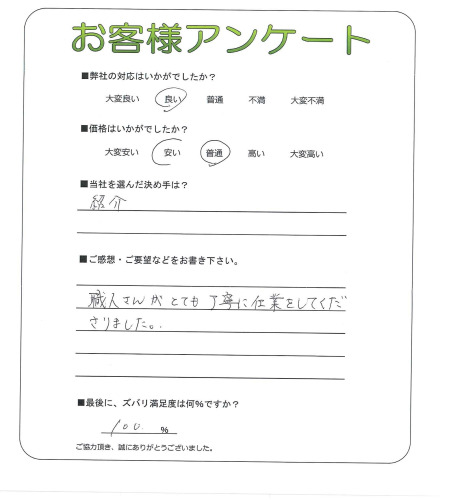 お客様アンケート
■弊社の対応はいかがでしたか？
大変良い 良い 普通 不満 大変不満
■価格はいかがでしたか？
大変安い 安い 普通 高い 大変高い
■当社を選んだ決め手は？
紹介
■ご感想・ご要望などをお書き下さい。
職人さんが とても 丁寧に仕業をしてくだ
さりました。
■最後に、ズバリ満足度は何％ですか？
100 ％
ご協力頂き、誠にありがとうございました。